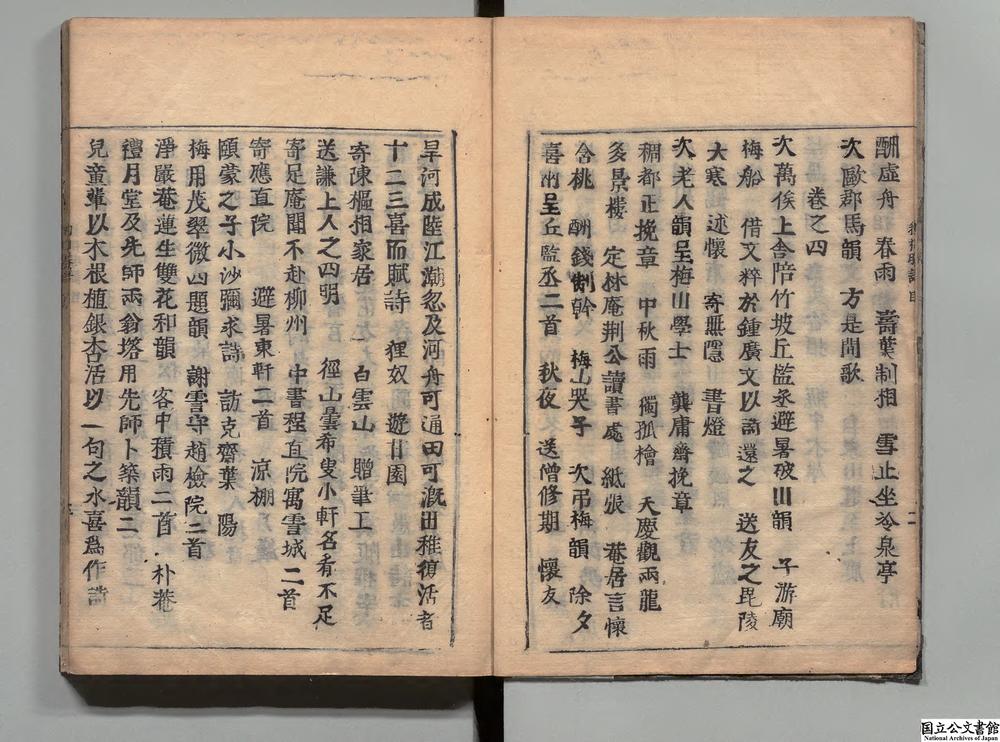 酬虛舟　春雨　壽葉制相　雪止坐冷泉亭
次歐郡馬韻　方是閒歌
卷之四
次萬俟上舍陪竹坡丘監丞避暑破山韻　子游廟
梅船　借文粹於鍾廣文以詩還之　送友之毘陵
大寒　述懷　寄無隱　書燈
次老人韻呈梅山學士　龔庸齋挽章
稠都正挽章　中秋雨　獨孤檜　天慶觀兩龍
多景樓　定林庵荆公讀書處　紙張　菴居言懷
含桃　酬錢制幹　梅山哭子　次弔梅韻　除夕
喜雨呈丘監丞二首　秋夜　送僧修期　懷友
旱河成陸江潮忽及河舟可通田可溉田稚復活者
十二三喜而賦詩　狸奴　遊甘園
寄陳樞相家居　白雲山　贈筆工
送謙上人之四明　徑山曇希叟小軒名看不足
寄足庵聞不赴柳州　中書程直院寓雪城二首
寄應直院　避暑東軒二首　凉棚
頤蒙之子小沙彌求詩　訪克齋葉　陽
梅用茂翠微四題韻　謝雪守趙檢院二首
淨嚴菴蓮生雙花和韻　客中積雨二首　朴菴
禮月堂及先師兩翁塔用先師卜築韻二
兒童輩以木根植銀杏活以一句之水喜爲作詩
二
国立公文書館
National Archives of Japan